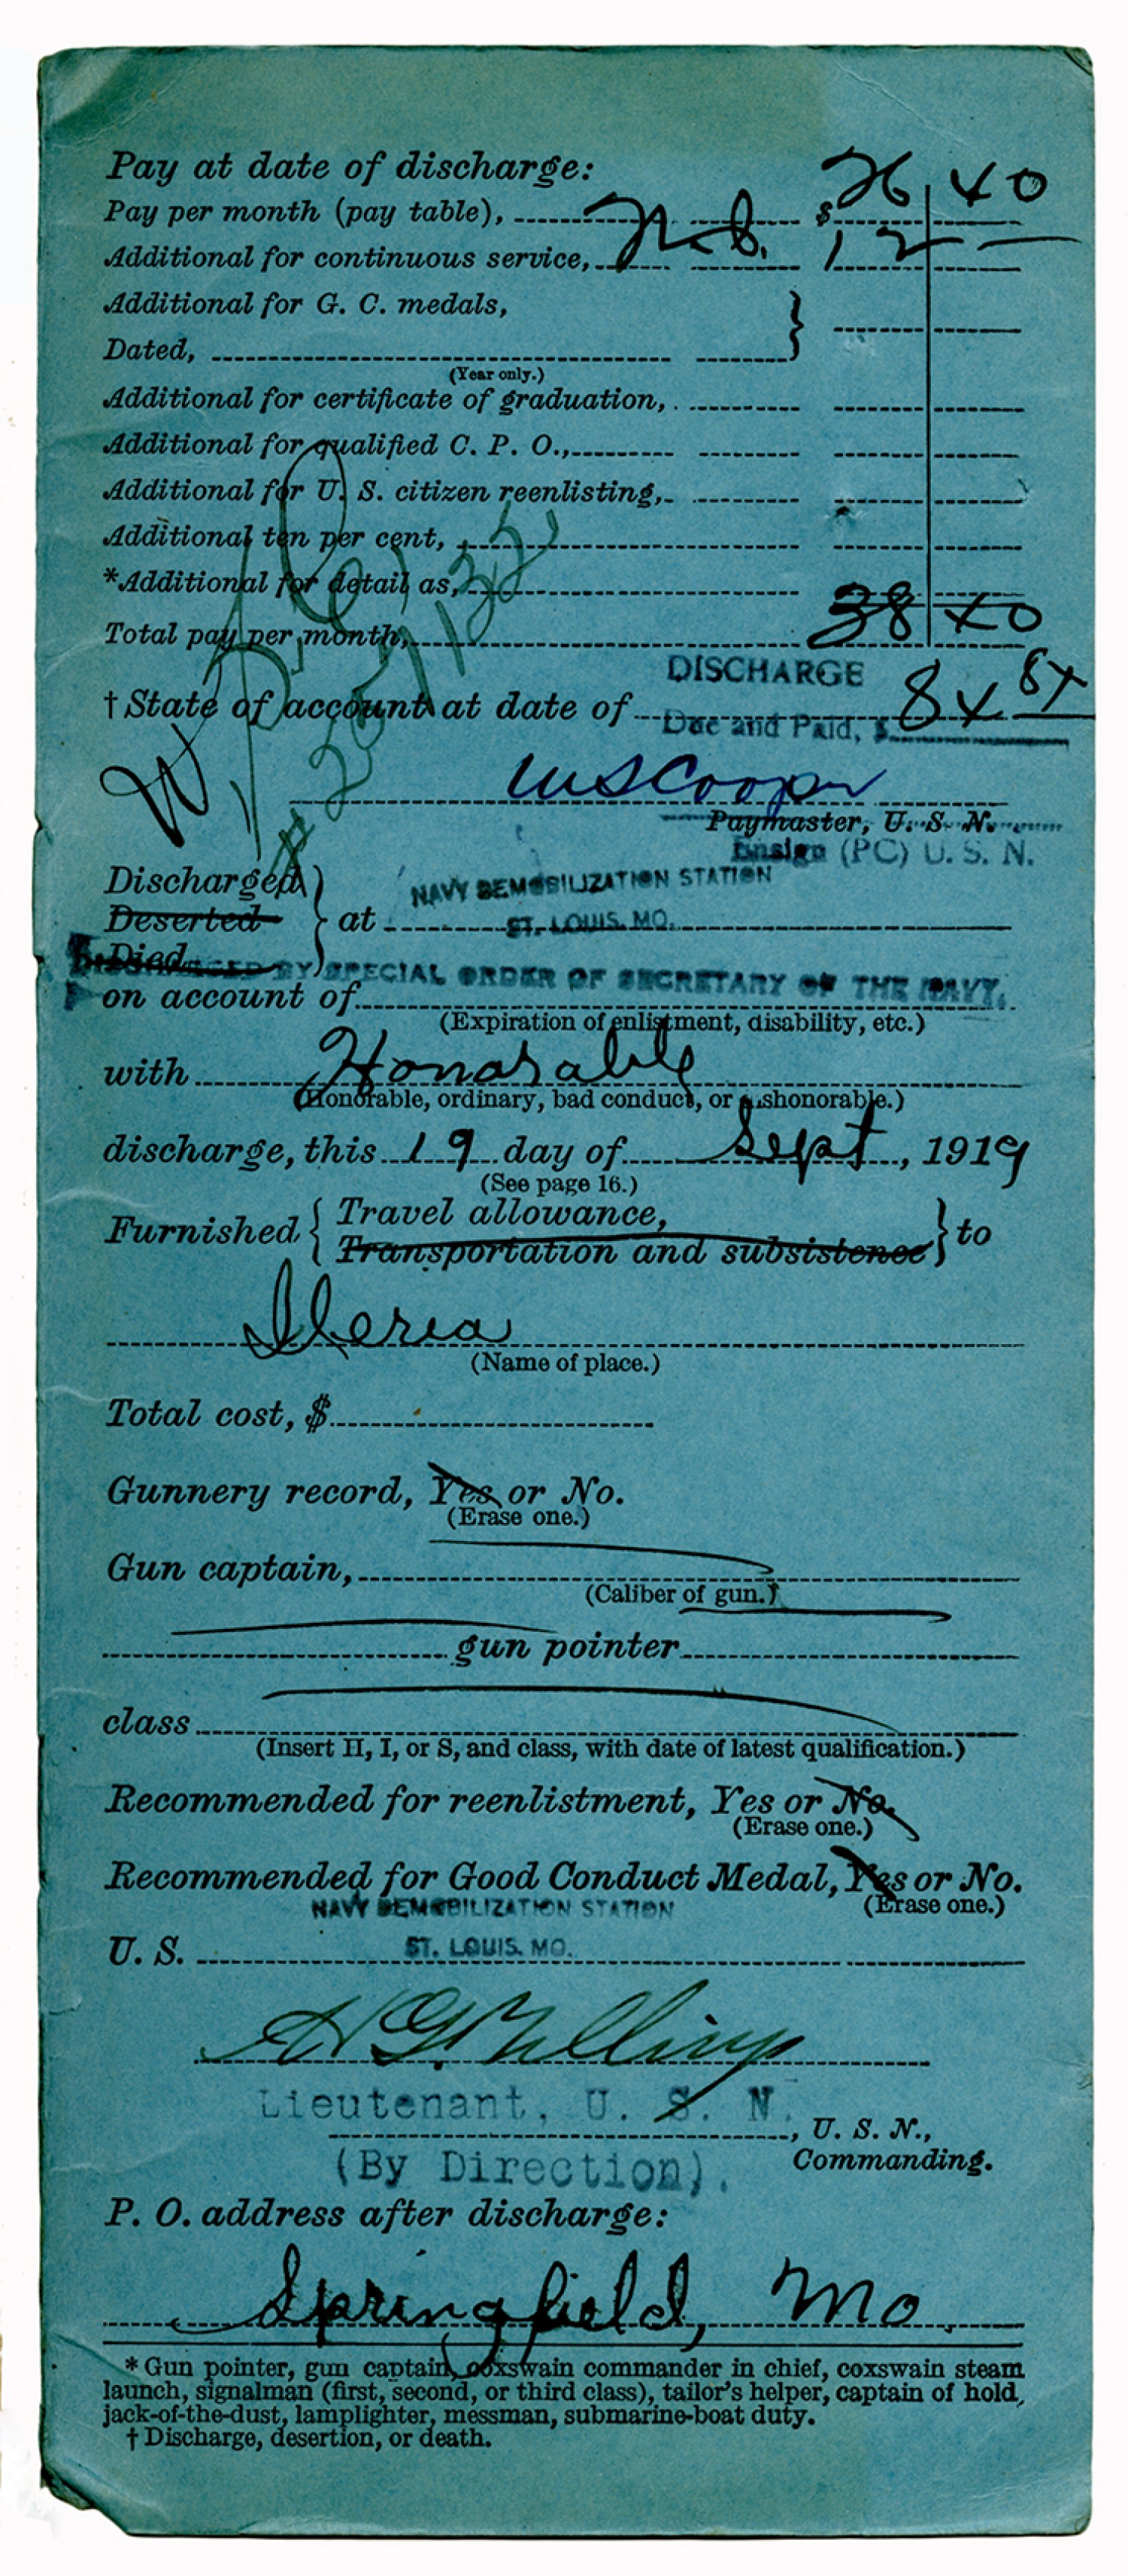 Pay at date of discharge:
Pay per month (pay table), $ 26 40
Additional for continuous service, 12 —
Additional for G. C. medals,
Dated,
(Year only.)
Additional for certificate of graduation,
Additional for qualified C. P. O.,
Additional for U. S. citizen reenlisting,
Additional ten per cent,
*Additional for detail as,
Total pay per month, 38 40
DISCHARGE
† State of account at date of
Due and Paid, $ 84 84
W S Cooper
Paymaster, U. S. N.
Ensign (PC) U. S. N.
Discharged
Deserted
Died
at NAVY DEMOBILIZATION STATION
ST. LOUIS. MO.
DISCHARGED BY SPECIAL ORDER OF SECRETARY OF THE NAVY.
on account of
(Expiration of enlistment, disability, etc.)
with Honorable
(Honorable, ordinary, bad conduct, or dishonorable.)
discharge, this 19 day of Sept, 1919
(See page 16.)
Furnished { Travel allowance,
Transportation and subsistence } to
(Name of place.)
Total cost, $
Gunnery record, Yes or No.
(Erase one.)
Gun captain,
(Caliber of gun.)
gun pointer
class
(Insert H, I, or S, and class, with date of latest qualification.)
Recommended for reenlistment, Yes or No.
(Erase one.)
Recommended for Good Conduct Medal, Yes or No.
(Erase one.)
NAVY DEMOBILIZATION STATION
U. S. ST. LOUIS. MO.
Lieutenant, U. S. N.
, U. S. N.,
(By Direction).
Commanding.
P. O. address after discharge:
Springfield, Mo
* Gun pointer, gun captain, coxswain commander in chief, coxswain steam
launch, signalman (first, second, or third class), tailor's helper, captain of hold,
jack-of-the-dust, lamplighter, messman, submarine-boat duty.
† Discharge, desertion, or death.